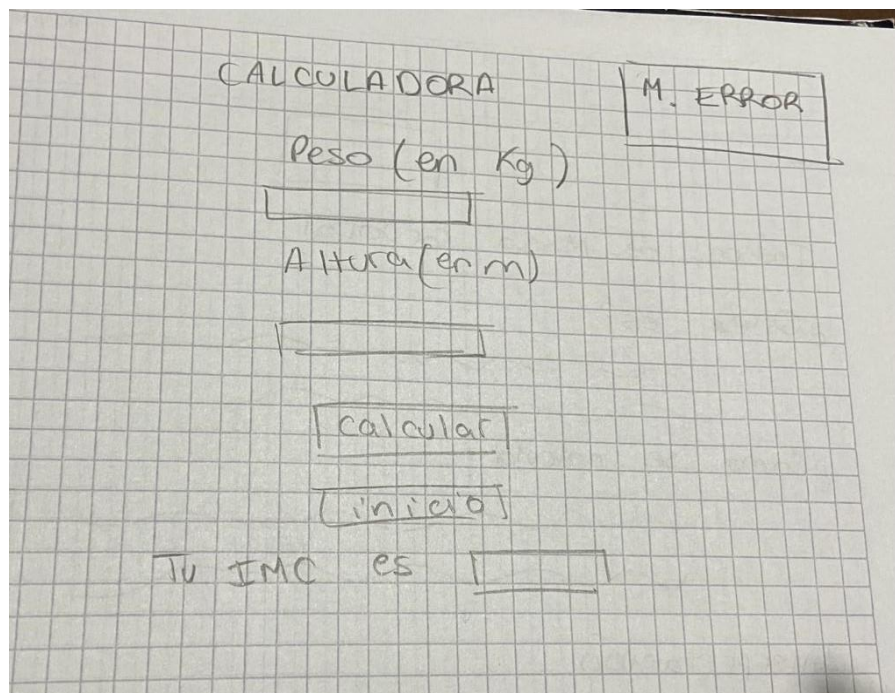 CALCULADORA
M. ERROR
Peso (en Kg)
Altura (en m)
calcular
inicio
Tu IMC es